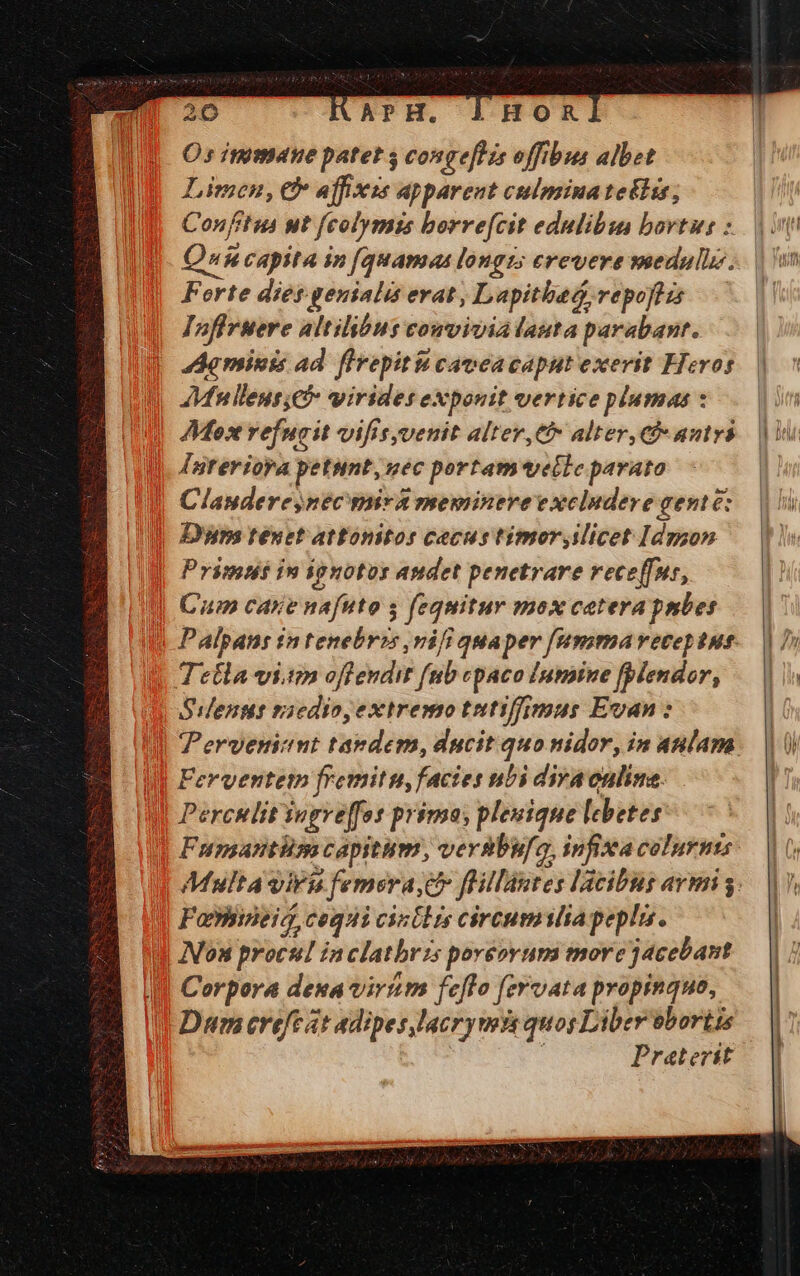 20 RAPH. THORI
Os immane patet; congeſtis oſſibus albet
Limen, & affixis apparent culmina tectis;
Conſitus ut ſcolymis horreſcit edulibus hortus :
Quũ capita in ſquamas longis crevere medullis.
Forte dies genialis erat, Lapithæq́, repoſtis
Inſtruere altilibus convivia lauta parabant.
Agminis ad ſtrepitũ cavea caput exerit Heros
Mulleus,& virides exponit vertice plumas :
Mox refugit viſis,venit alter,& alter,& antrã
Interiora petunt, nec portam velle parato
Claudere,nec mirã meminere excludere gentẽ:
Dum tenet attonitos cæcus timor,ilicet Idmon
Primus in ignotos audet penetrare receſſus,
Cum cane naſuto ; ſequitur mox cætera pubes
Palpans in tenebris ,niſi qua per ſumma receptus
Tecta viam oſtendit ſub opaco lumine ſplendor,
Silenus medio,extremo tutiſſimus Evan :
Perveniunt tandem, ducit quo nidor, in aulam
Ferventem fremitu, facies ubi dira culinæ
Perculit ingreſſos prima, plenique lebetes
Fumantũm capitum, verũbuſq, infixa colurnis
Multa virũ femora,& ſtillantes lãcibus armi ;
Fœmineiq́, coqui cinctis circum ilia peplis.
Non procul in clathris porcorum more jacebant
Corpora dena virũm feſto ſervata propinquo,
Dum creſcãt adipes,lacrymis quos Liber obortis
Præterit